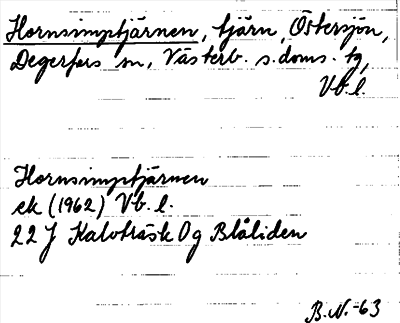 Hornsimptjärnen, tjärn, Östersjön,
Degerfors sn, Västerb. s. doms. tg,
Vb. l.
Hornsimptjärnen
ek (1962) Vb. l.
22 J Kalvträsk Og Blåliden
B.N.-63